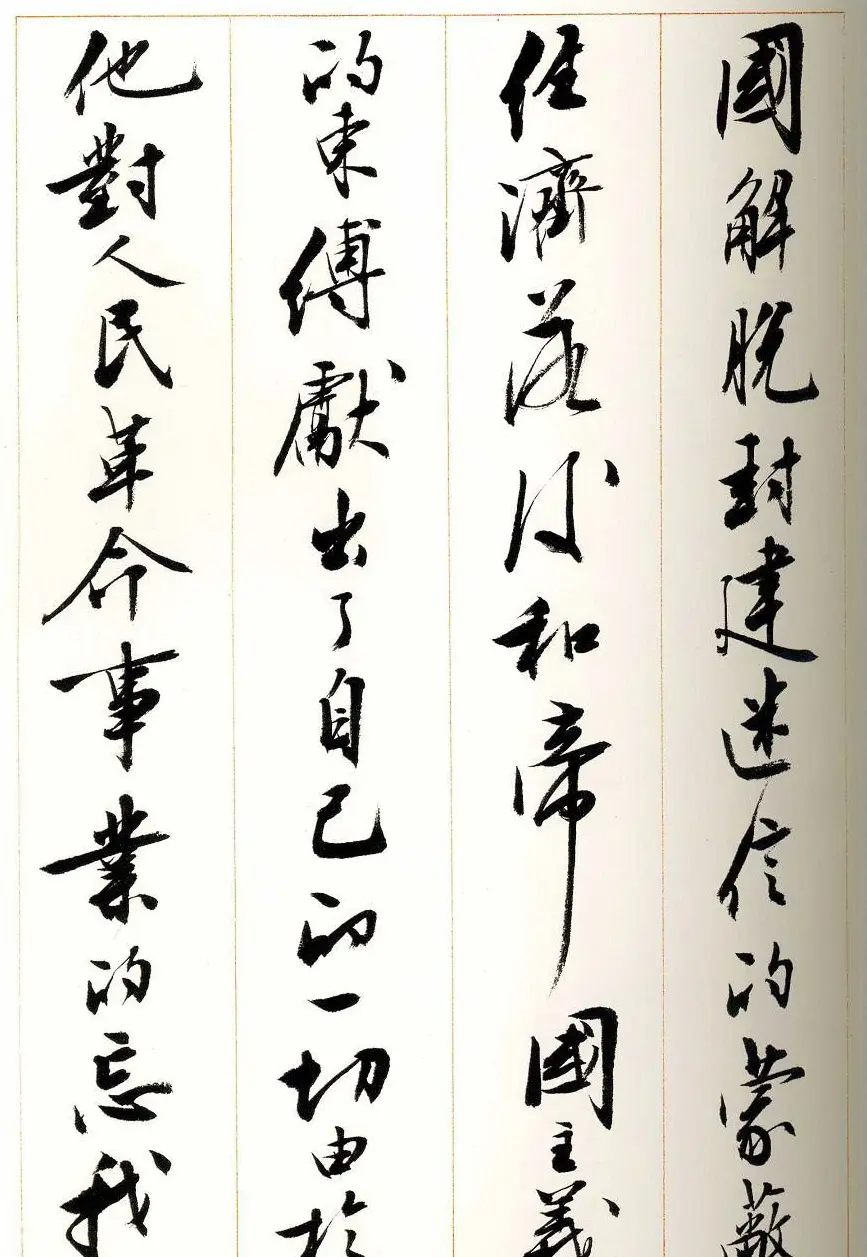 國解脫封建迷信的蒙蔽
經濟落後和帝國主義
的束縛獻出了自己的一切由於
他對人民革命事業的忘我